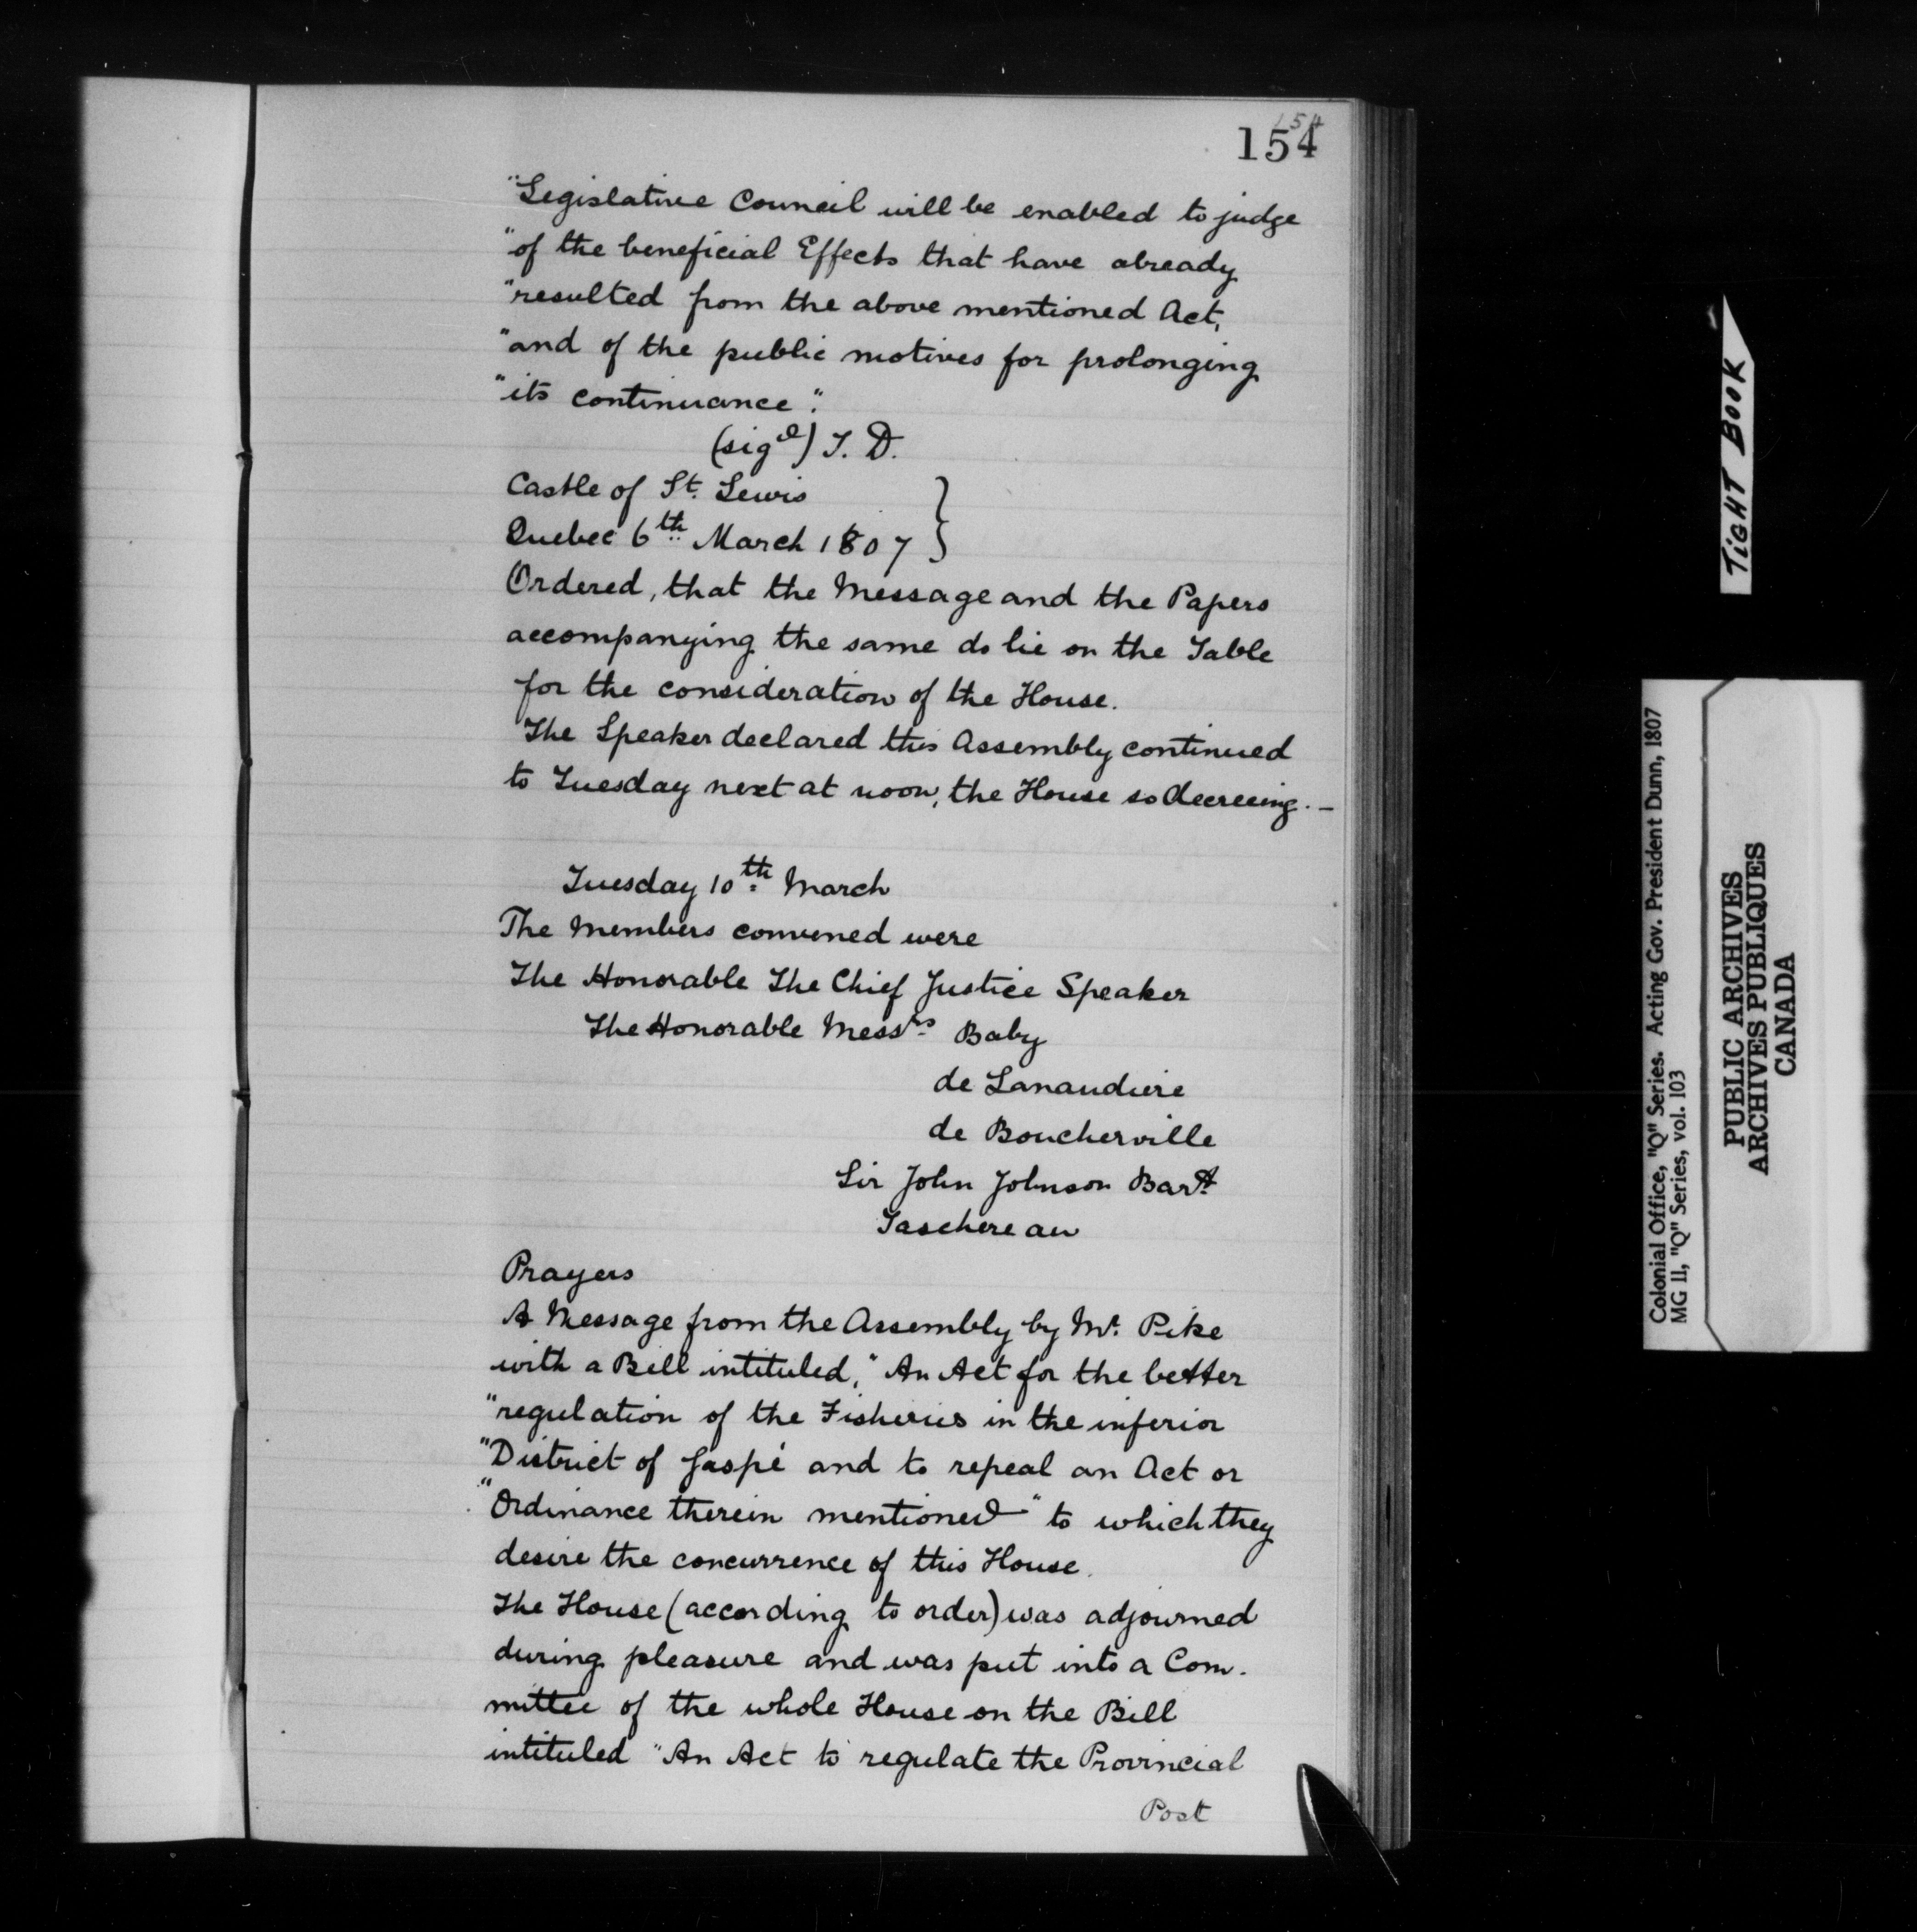 154
154
"Legislative Council will be enabled to judge
"of the beneficial Effects that have already
"resulted from the above mentioned Act,
"and of the public motives for prolonging
"its continuance".
(sigd) T. D.
Castle of St. Lewis
Quebec 6th March 1807 }
Ordered, that the Message and the Papers
accompanying the same do lie on the Table
for the consideration of the House.
The Speaker declared this Assembly continued
to Tuesday next at noon, the House so decreeing. —
Tuesday 10th March
The Members convened were
The Honorable The Chief Justice Speaker
The Honorable Messrs Baby
de Lanaudiere
de Boucherville
Sir John Johnson Bart
Taschereau
Prayers
A Message from the Assembly by Mr. Pike
with a Bill intituled, "An Act for the better
"regulation of the Fisheries in the inferior
"District of Gaspé and to repeal an Act or
"Ordinance therein mentioned" to which they
desire the concurrence of this House.
The House (according to order) was adjourned
during pleasure and was put into a Com-
mittee of the whole House on the Bill
intituled "An Act to regulate the Provincial
Post
TIGHT BOOK
Colonial Office, "Q" Series. Acting Gov. President Dunn, 1807
MG 11, "Q" Series, vol. 103
PUBLIC ARCHIVES
ARCHIVES PUBLIQUES
CANADA